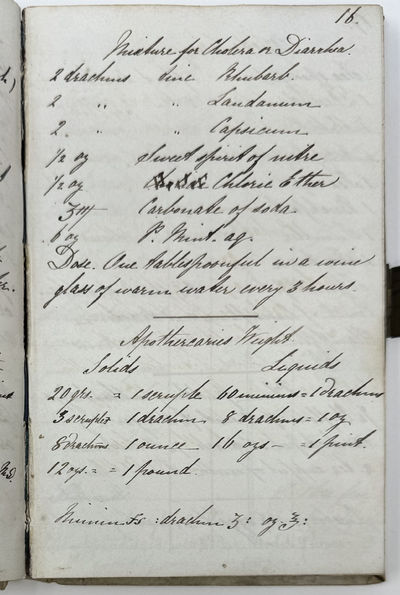 16.
Mixture for Cholera or Diarrhea
2 drachms vine Rhubarb.
2 " " Laudanum
2 " " Capsicum
1/2 oz Sweet spirit of nitre
1/2 oz Chloric Ether
Carbonate of soda
6 oz P. Mint. aq.
Dose. One tablespoonful in a wine
glass of warm water every 3 hours.
Apothecaries Weight
Solids Liquids
20 grs. = 1 scruple 60 minims = 1 drachm
3 scruples 1 drachm 8 drachms = 1 oz
8 drachms 1 ounce 16 ozs - = 1 pint.
12 ozs. = = 1 pound.
Minim : drachm ʒ : oz ℥ :